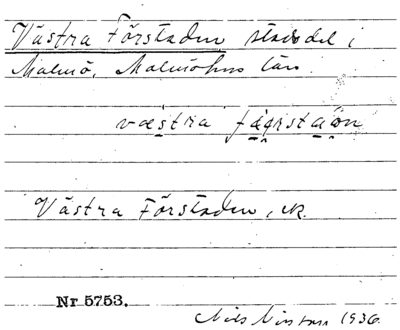 Västra Förstaden stadsdel i
Malmö, Malmöhus län.
væstra
Västra Förstaden, rk.
Nr 5753.
Nils 1936.